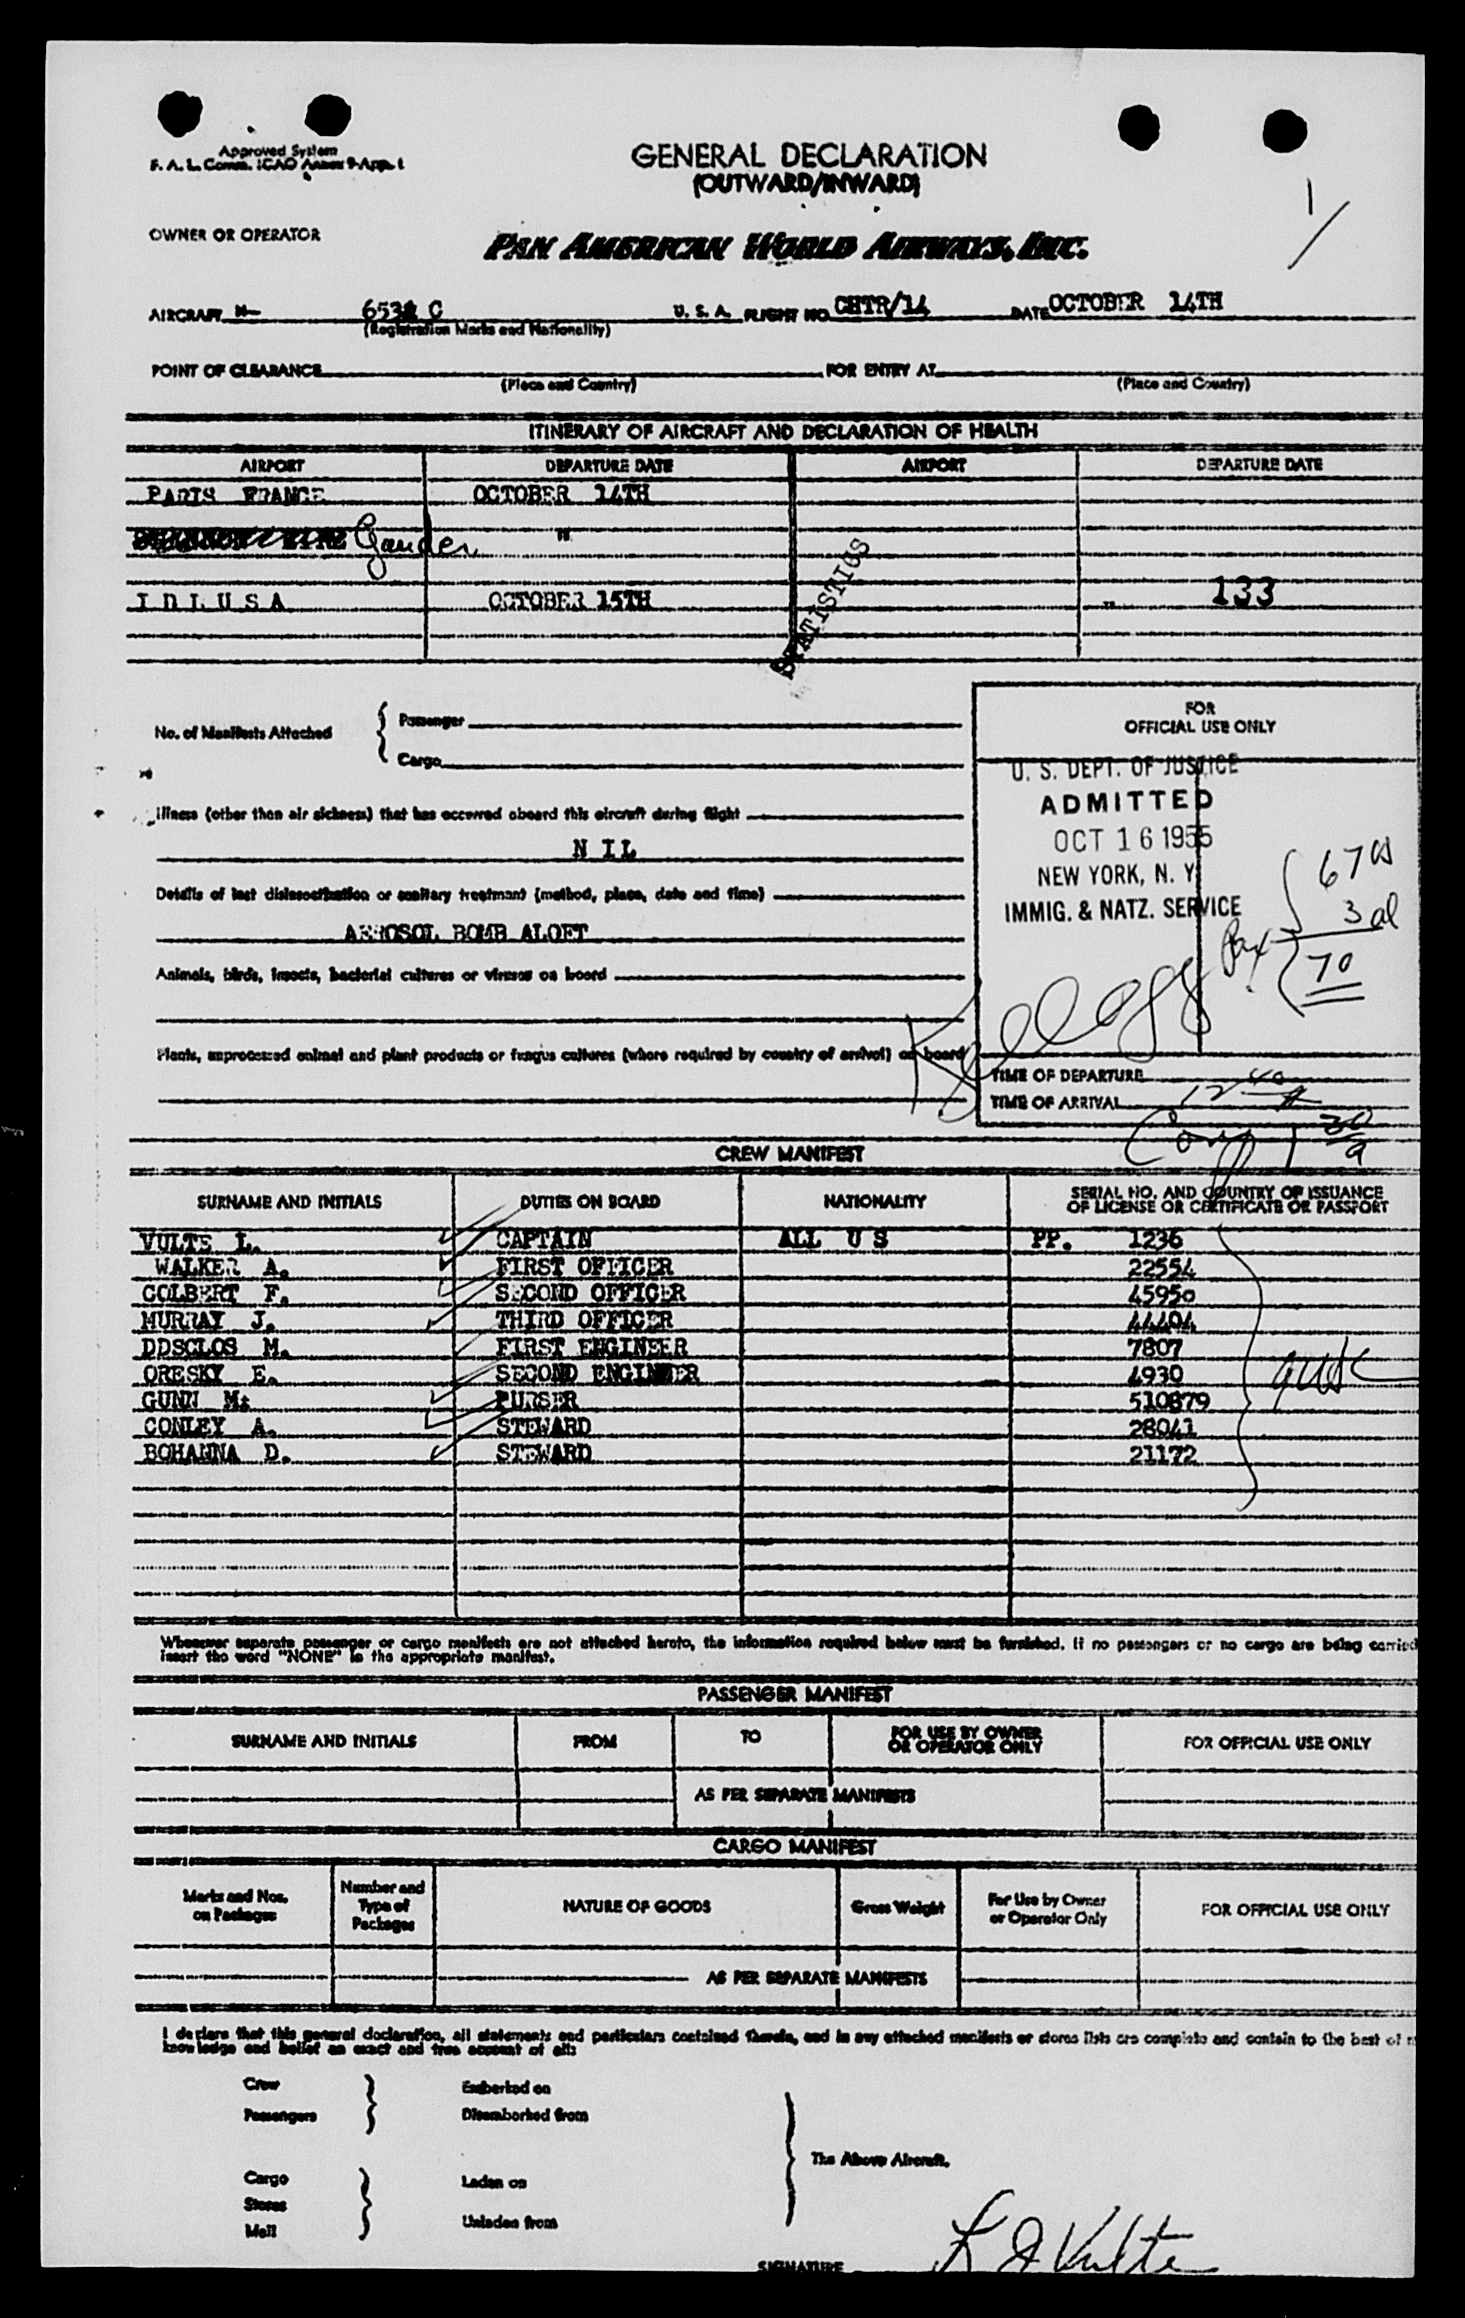 Approved System
F. A. L. Comm. ICAO Annex 9-App. 1
GENERAL DECLARATION
(OUTWARD/INWARD)
1/
OWNER OR OPERATOR
PAN AMERICAN WORLD AIRWAYS, INC.
AIRCRAFT N- 653 C U. S. A. FLIGHT NO. CHTR/14 DATE OCTOBER 14TH
(Registration Marks and Nationality)
POINT OF CLEARANCE FOR ENTRY AT
(Place and Country) (Place and Country)
ITINERARY OF AIRCRAFT AND DECLARATION OF HEALTH
AIRPORT DEPARTURE DATE AIRPORT DEPARTURE DATE
PARIS FRANCE OCTOBER 14TH
Gander "
STATISTICS
I D L U S A OCTOBER 15TH 133
FOR
OFFICIAL USE ONLY
No. of Manifests Attached { Passenger
Cargo
U. S. DEPT. OF JUSTICE
ADMITTED
OCT 16 1955
NEW YORK, N. Y.
IMMIG. & NATZ. SERVICE
67 us
3 al
Pax 70
Illness (other than air sickness) that has occurred aboard this aircraft during flight
N I L
Details of last disinsectization or sanitary treatment (method, place, date and time)
AEROSOL BOMB ALOFT
Animals, birds, insects, bacterial cultures or viruses on board
Kellogg
Plants, unprocessed animal and plant products or fungus cultures (where required by country of arrival) on board
TIME OF DEPARTURE
TIME OF ARRIVAL 12 40 A
CREW MANIFEST
SURNAME AND INITIALS DUTIES ON BOARD NATIONALITY SERIAL NO. AND COUNTRY OF ISSUANCE
OF LICENSE OR CERTIFICATE OR PASSPORT
VULTE L. CAPTAIN ALL U S PP. 1236
WALKER A. FIRST OFFICER 22554
COLBERT F. SECOND OFFICER 45950
MURRAY J. THIRD OFFICER 44404
DDSCLOS M. FIRST ENGINEER 7807
ORESKY E. SECOND ENGINEER 4930
GUNN M: PURSER 510879
CONLEY A. STEWARD 28041
BOHANNA D. STEWARD 21172
Whenever separate passenger or cargo manifests are not attached hereto, the information required below must be furnished. If no passengers or no cargo are being carried
insert the word "NONE" in the appropriate manifest.
PASSENGER MANIFEST
SURNAME AND INITIALS FROM TO FOR USE BY OWNER
OR OPERATOR ONLY FOR OFFICIAL USE ONLY
AS PER SEPARATE MANIFESTS
CARGO MANIFEST
Marks and Nos.
on Packages Number and
Type of
Packages NATURE OF GOODS Gross Weight For Use by Owner
or Operator Only FOR OFFICIAL USE ONLY
AS PER SEPARATE MANIFESTS
I declare that this general declaration, all statements and particulars contained therein, and in any attached manifests or stores lists are complete and contain to the best of
knowledge and belief an exact and true account of all:
Crew Embarked on
Passengers Disembarked from
The Above Aircraft.
Cargo Laden on
Stores
Mail Unladen from
SIGNATURE L J Vulte